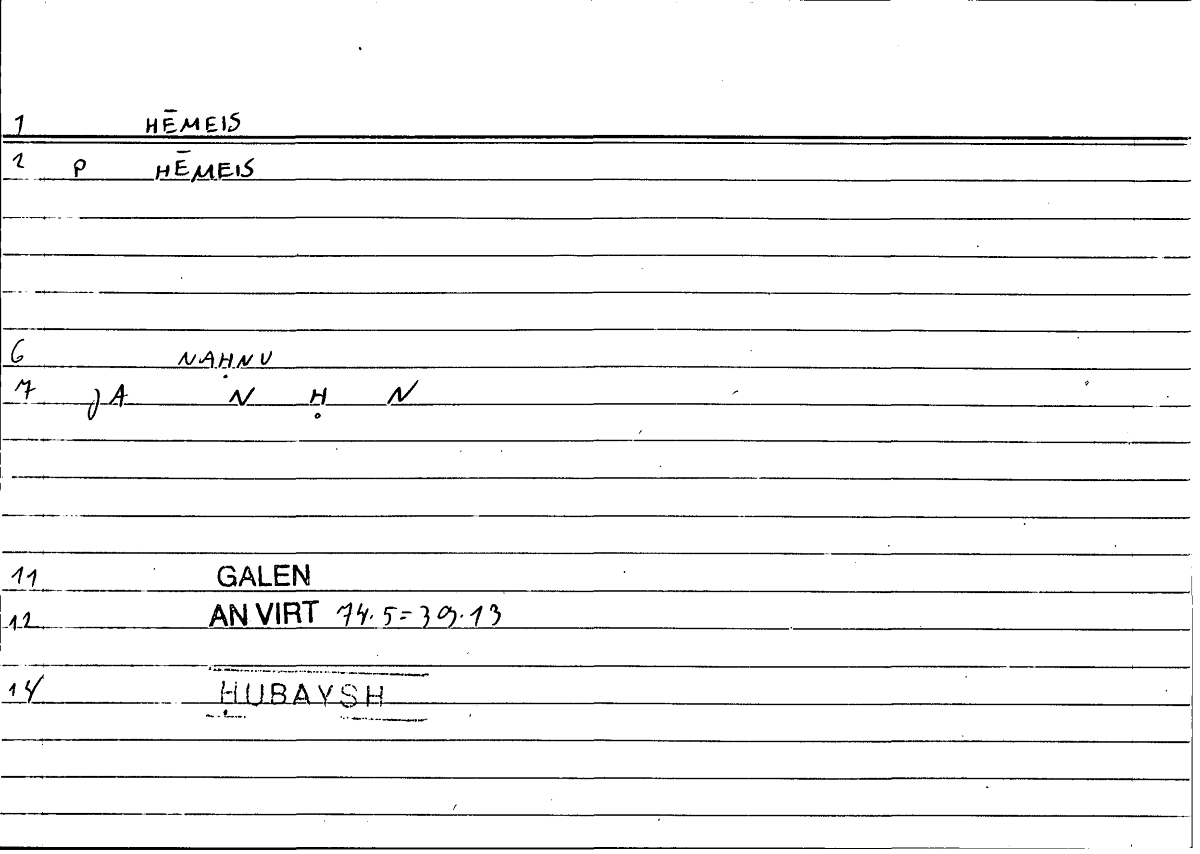 1 HĒMEIS
2 P HĒMEIS
6 NAḤNU
7 JA N Ḥ N
11 GALEN
12 AN VIRT 74.5=39.13
14 ḤUBAYSH